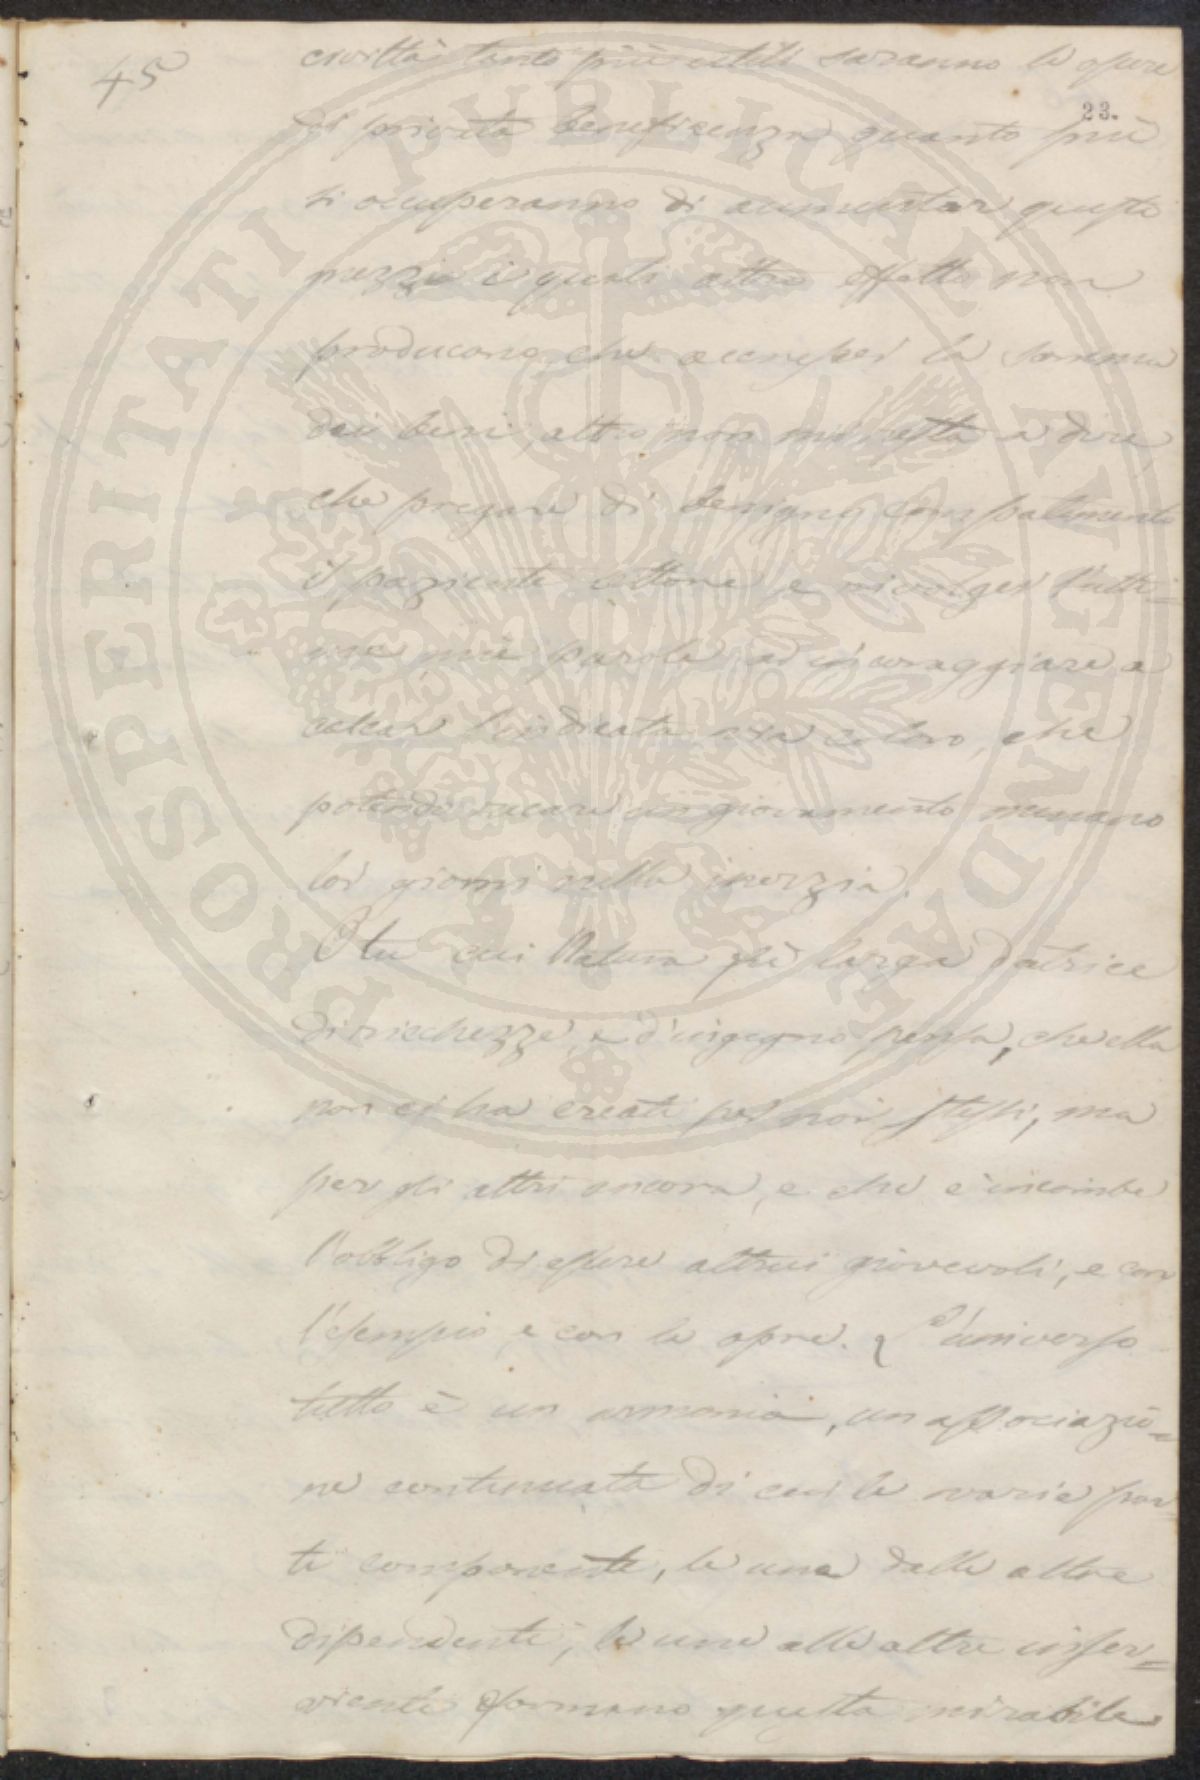 45
civiltà; tanto più utili saranno le opere
23.
di privata beneficenza quanto più
si occuperanno di aumentar questi
mezzi i quali altro effetto non
producono che accrescer la somma
dei beni altro non mi resta a dire,
che pregare di benigno compatimento
il paziente lettore e rivolger l'ulti=
me mie parole ad incoraggiare a
calcar l'indicata via coloro, che
potendo recare un giovamento menano
lor giorni nella inerzia.
O tu cui Natura fù larga datrice
di ricchezze, e d'ingegno pensa, che ella
non ci ha creati per noi stessi, ma
per gli altri ancora, e che c'incombe
l'obbligo di essere altrui giovevoli, e con
l'esempio e con le opre. L'universo
tutto è un armonia, un associazio=
ne continuata di cui le varie par=
ti componenti, le une dalle altre
dipendenti, le une alle altre inser=
vienti formano questa mirabile
PROSPERITATI PVBLICAE AVGENDAE